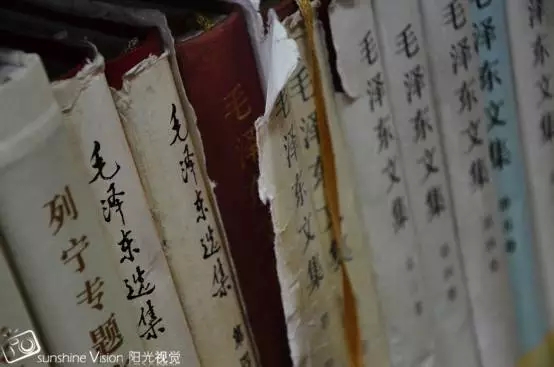 列宁专题
毛泽东选集
毛泽东选集
毛泽
毛泽东文集
毛泽东文集
毛泽东文集
毛泽东文集
毛泽东文集
毛泽东文集
sunshine Vision 阳光视觉